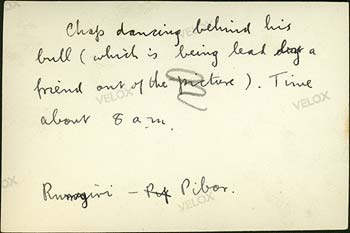 Chap dancing behind his
bull (which is being lead by a
friend out of the picture). Time
about 8 a.m.
Rumgiri - Pibor.
VELOX
VELOX
VELOX
VELOX
VELOX